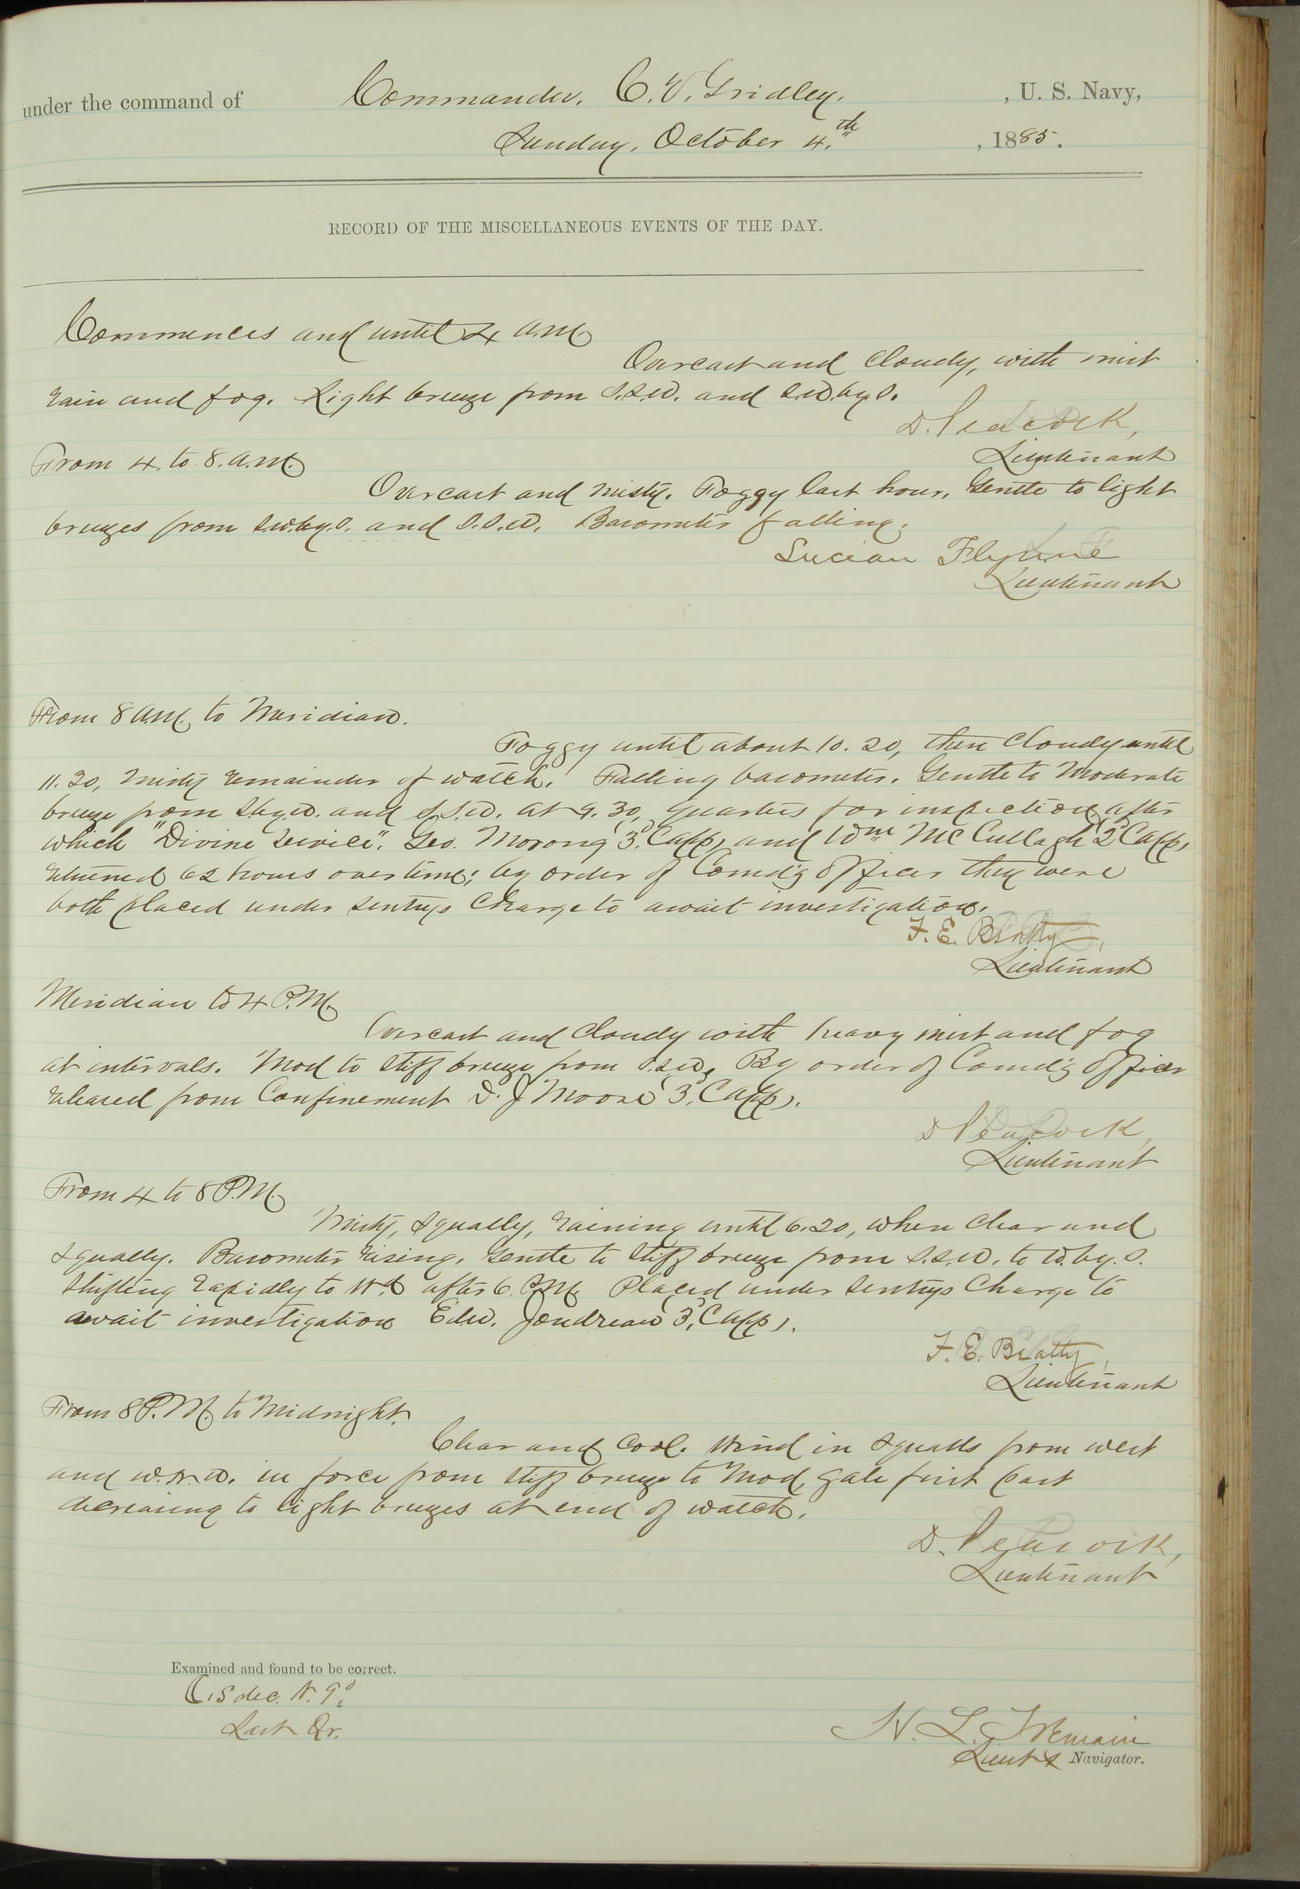 under the command of Commander, C. V. Gridley. , U. S. Navy,
Sunday, October 4.th , 1885.
RECORD OF THE MISCELLANEOUS EVENTS OF THE DAY.
Commences and until 4 a.m.
Overcast and cloudy, with mist
rain and fog. Light breeze from S.S.W. and S.W.by.S.
D. Peacock,
Lieutenant
From 4 to 8. a.m.
Overcast and misty. Foggy last hour. Gentle to light
breezes from S.W.by.S. and S.S.W. Barometer falling.
Lucian Flynne
Lieutenant
From 8 a.m. to Meridian.
Foggy until about 10.20, then cloudy until
11.20, misty remainder of watch. Falling barometer. Gentle to moderate
breeze from S.by.W. and S.S.W. at 9.30, quarters for inspection, after
which "Divine service". Geo. Morong (3".Capp) and Wm McCullagh (2"Capp)
returned 62 hours overtime; by order of Comd'g Officer they were
both placed under sentrys charge to await investigation.
F. E. Beatty,
Lieutenant
Meridian to 4 P.M.
Overcast and cloudy with heavy mist and fog
at intervals. Mod to stiff breeze from S.S.W. By order of Comd'g Officer
released from Confinement D. J Moore (3".Capp).
D Peacock,
Lieutenant
From 4 to 8 P.M.
Misty, squally, raining until 6.20, when clear and
squally. Barometer rising. Gentle to stiff breeze from S.S.W. to W.by.S.
shifting rapidly to Wd after 6. P.M. Placed under sentrys charge to
await investigation Edw. Jendreau (3".Capp).
F. E. Beatty,
Lieutenant
From 8 P.M. to Midnight.
Clear and cool. Wind in squalls from west
and W.N.W. in force from stiff breeze to Mod. gale first part
decreasing to light breezes at end of watch.
D. Peacock,
Lieutenant
Examined and found to be correct.
C's dec. N. 9°
Last Qr.
H. L. Tremain
Lieut & Navigator.